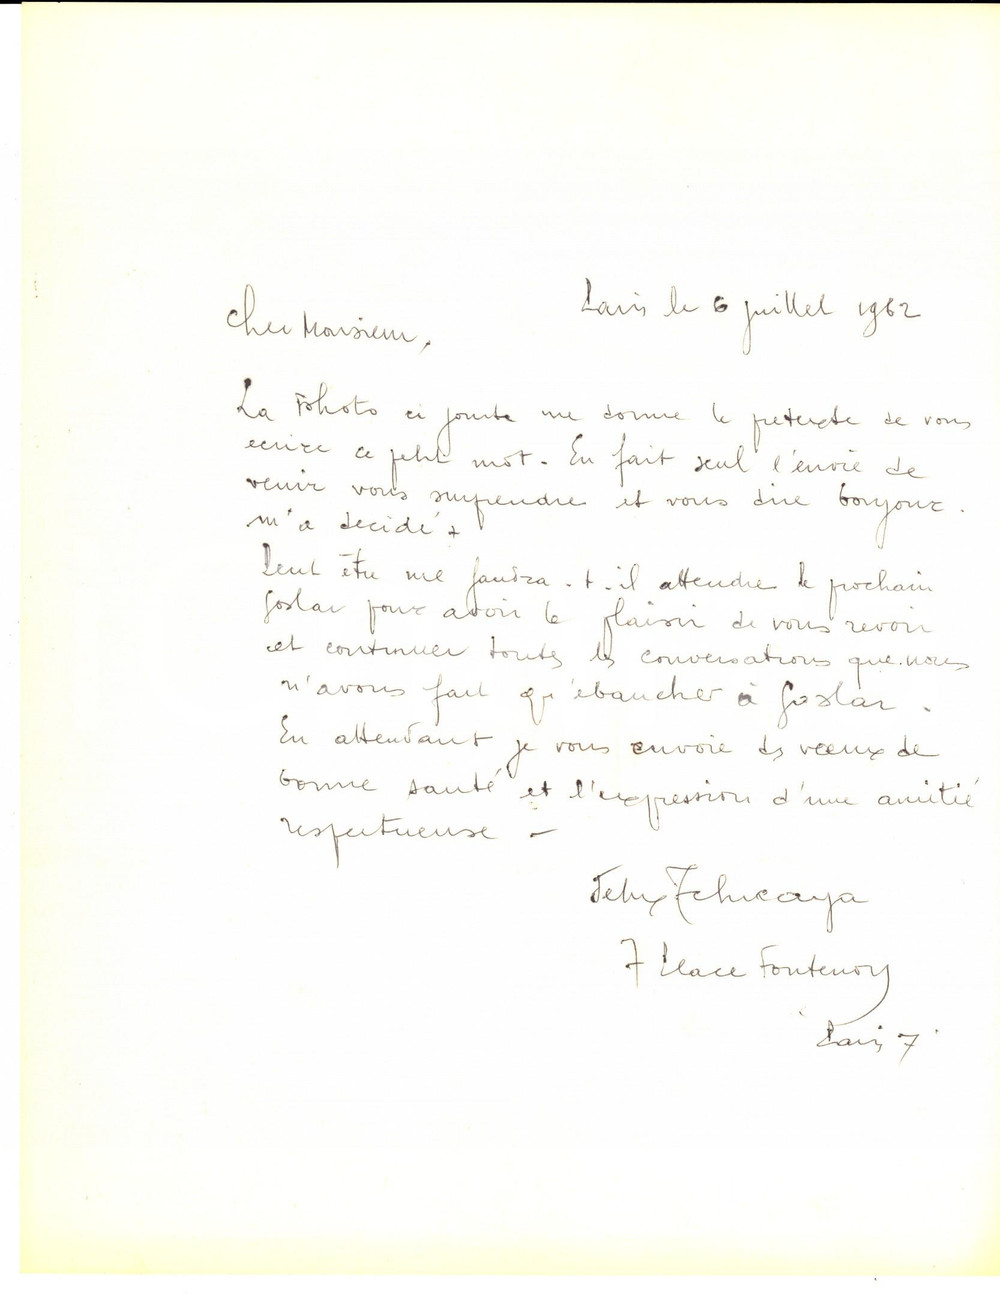 Paris le 6 juillet 1962
Cher Monsieur,
La Photo ci jointe me donne le pretexte de vous
ecrire ce petit mot. En fait seul l'envie de
venir vous surprendre et vous dire bonjour.
m'a decidé.
Peut être me faudra.t.il attendre le prochain
Goslar pour avoir le plaisir de vous revoir
et continuer toutes les conversations que nous
n'avons fait qu'ebaucher à Goslar.
En attendant je vous envoie des vœux de
bonne santé et l'expression d'une amitié
respectueuse -
Felix Tchicaya
7 Place Fontenoy
Paris 7